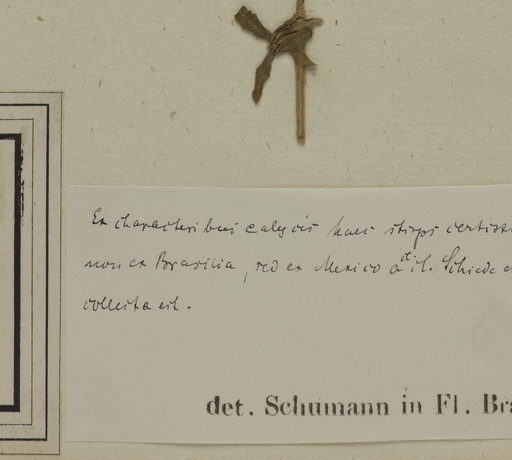 Ex characteribus calycis haec stirps certiss
non ex Brasilia, sed ex Mexico a cl. Schiede
collecta est.
det. Schumann in Fl. Bra